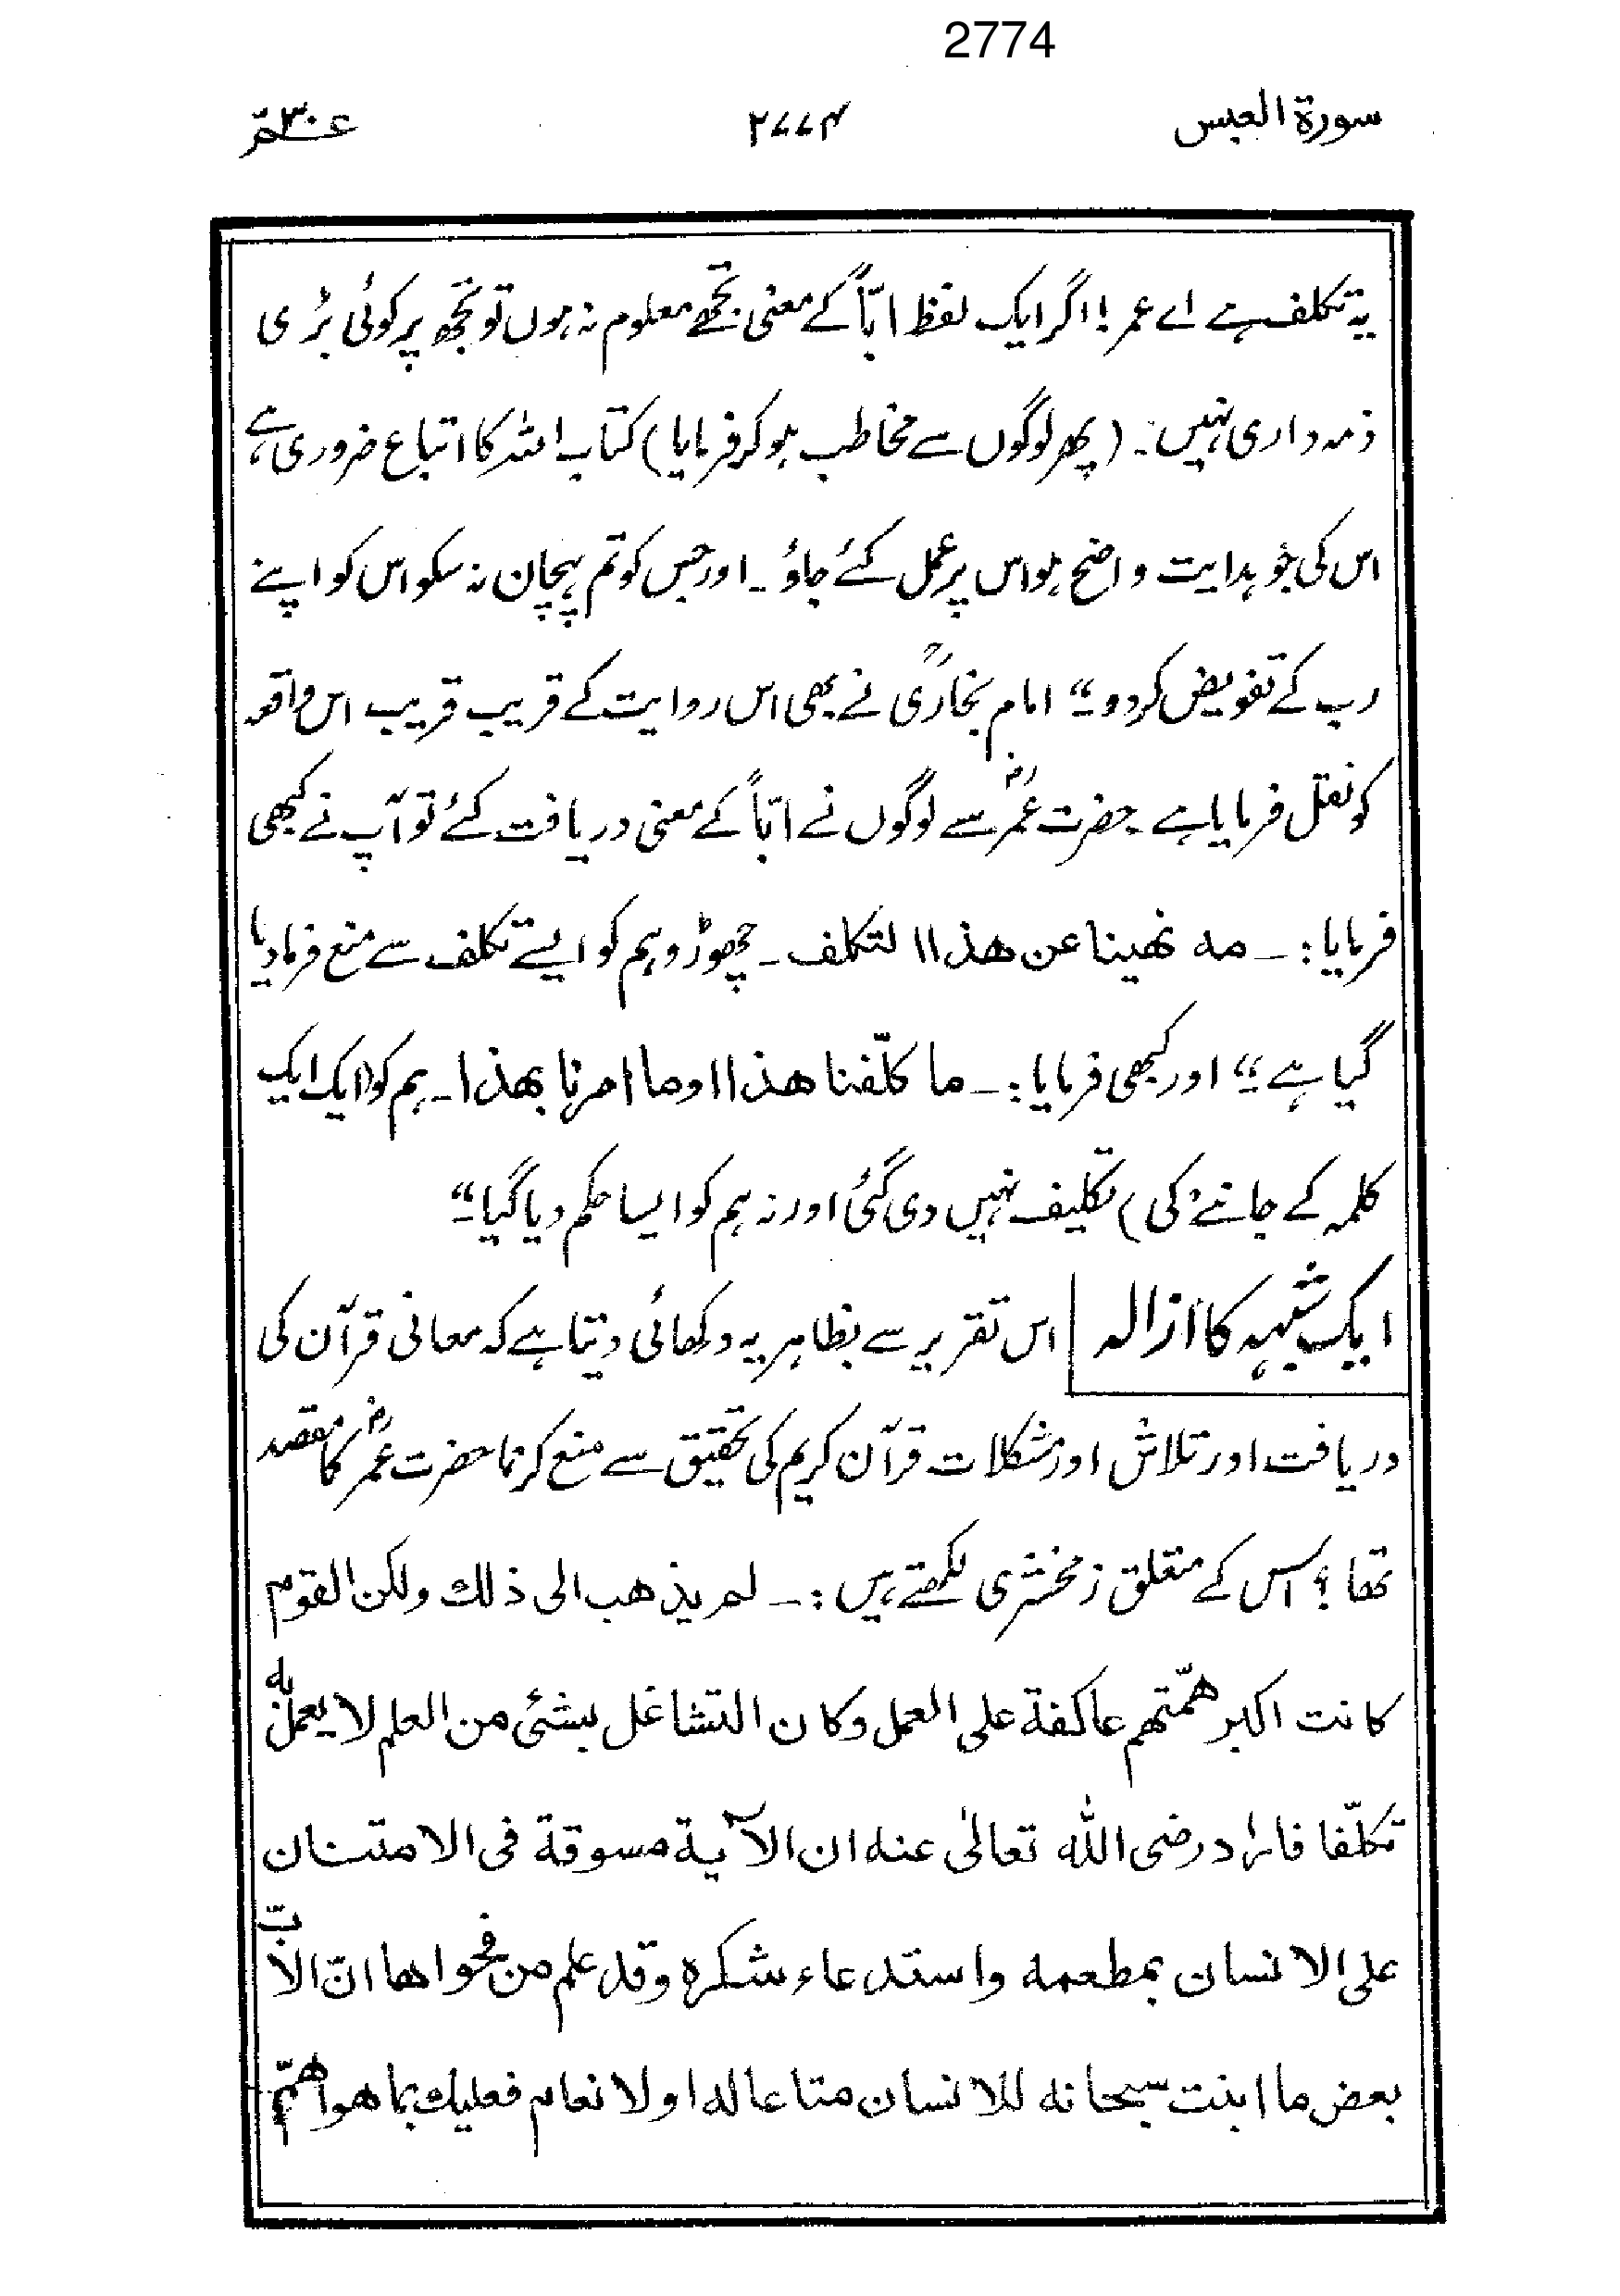 2774
سورۃ العبس ۲۷۷۴ عـمّ ۳۰
یہ تکلف ہے اے عمر! اگر ایک لفظ ابّاً کے معنی تجھے معلوم نہ ہوں تو تجھ پر کوئی بڑی
ذمہ داری نہیں۔ (پھر لوگوں سے مخاطب ہو کر فرمایا) کتاب اللہ کا اتباع ضروری ہے،
اس کی جو ہدایت واضح ہو اس پر عمل کئے جاؤ۔ اور جس کو تم پہچان نہ سکو اس کو اپنے
رب کے تفویض کردو۔“ امام بخاریؒ نے بھی اس روایت کے قریب قریب اس واقعہ
کو نقل فرمایا ہے۔ حضرت عمرؓ سے لوگوں نے ابّاً کے معنی دریافت کئے تو آپ نے کبھی
فرمایا:۔ مه نهينا عن هذا التكلف۔ چھوڑو ہم کو ایسے تکلف سے منع فرمادیا
گیا ہے۔“ اور کبھی فرمایا:۔ ما كلّفنا هذا او ما امرنا بهذا۔ ہم کو (ایک ایک
کلمہ کے جاننے کی) تکلیف نہیں دی گئی اور نہ ہم کو ایسا حکم دیا گیا۔“
ایک شبہہ کا ازالہ اس تقریر سے بظاہر یہ دکھائی دیتا ہے کہ معانی قرآن کی
دریافت اور تلاش اور مشکلات قرآن کریم کی تحقیق سے منع کرنا حضرت عمرؓ کا مقصد
تھا؟ اس کے متعلق زمخشری لکھتے ہیں:۔ لم يذهب الى ذلك ولكن القوم
كانت اكبر همّتهم عاكفة على العمل وكان التشاغل بشئ من العلم لا يعمل به
تكلّفا فاراد رضى الله تعالىٰ عنه ان الآية مسوقة فى الامتنان
على الانسان بمطعمه واستدعاء شكره وقد علم من فحواها انّ الابّ
بعض ما انبت سبحانه للانسان متاعا له او لانعام فعليك بما هو اهمّ